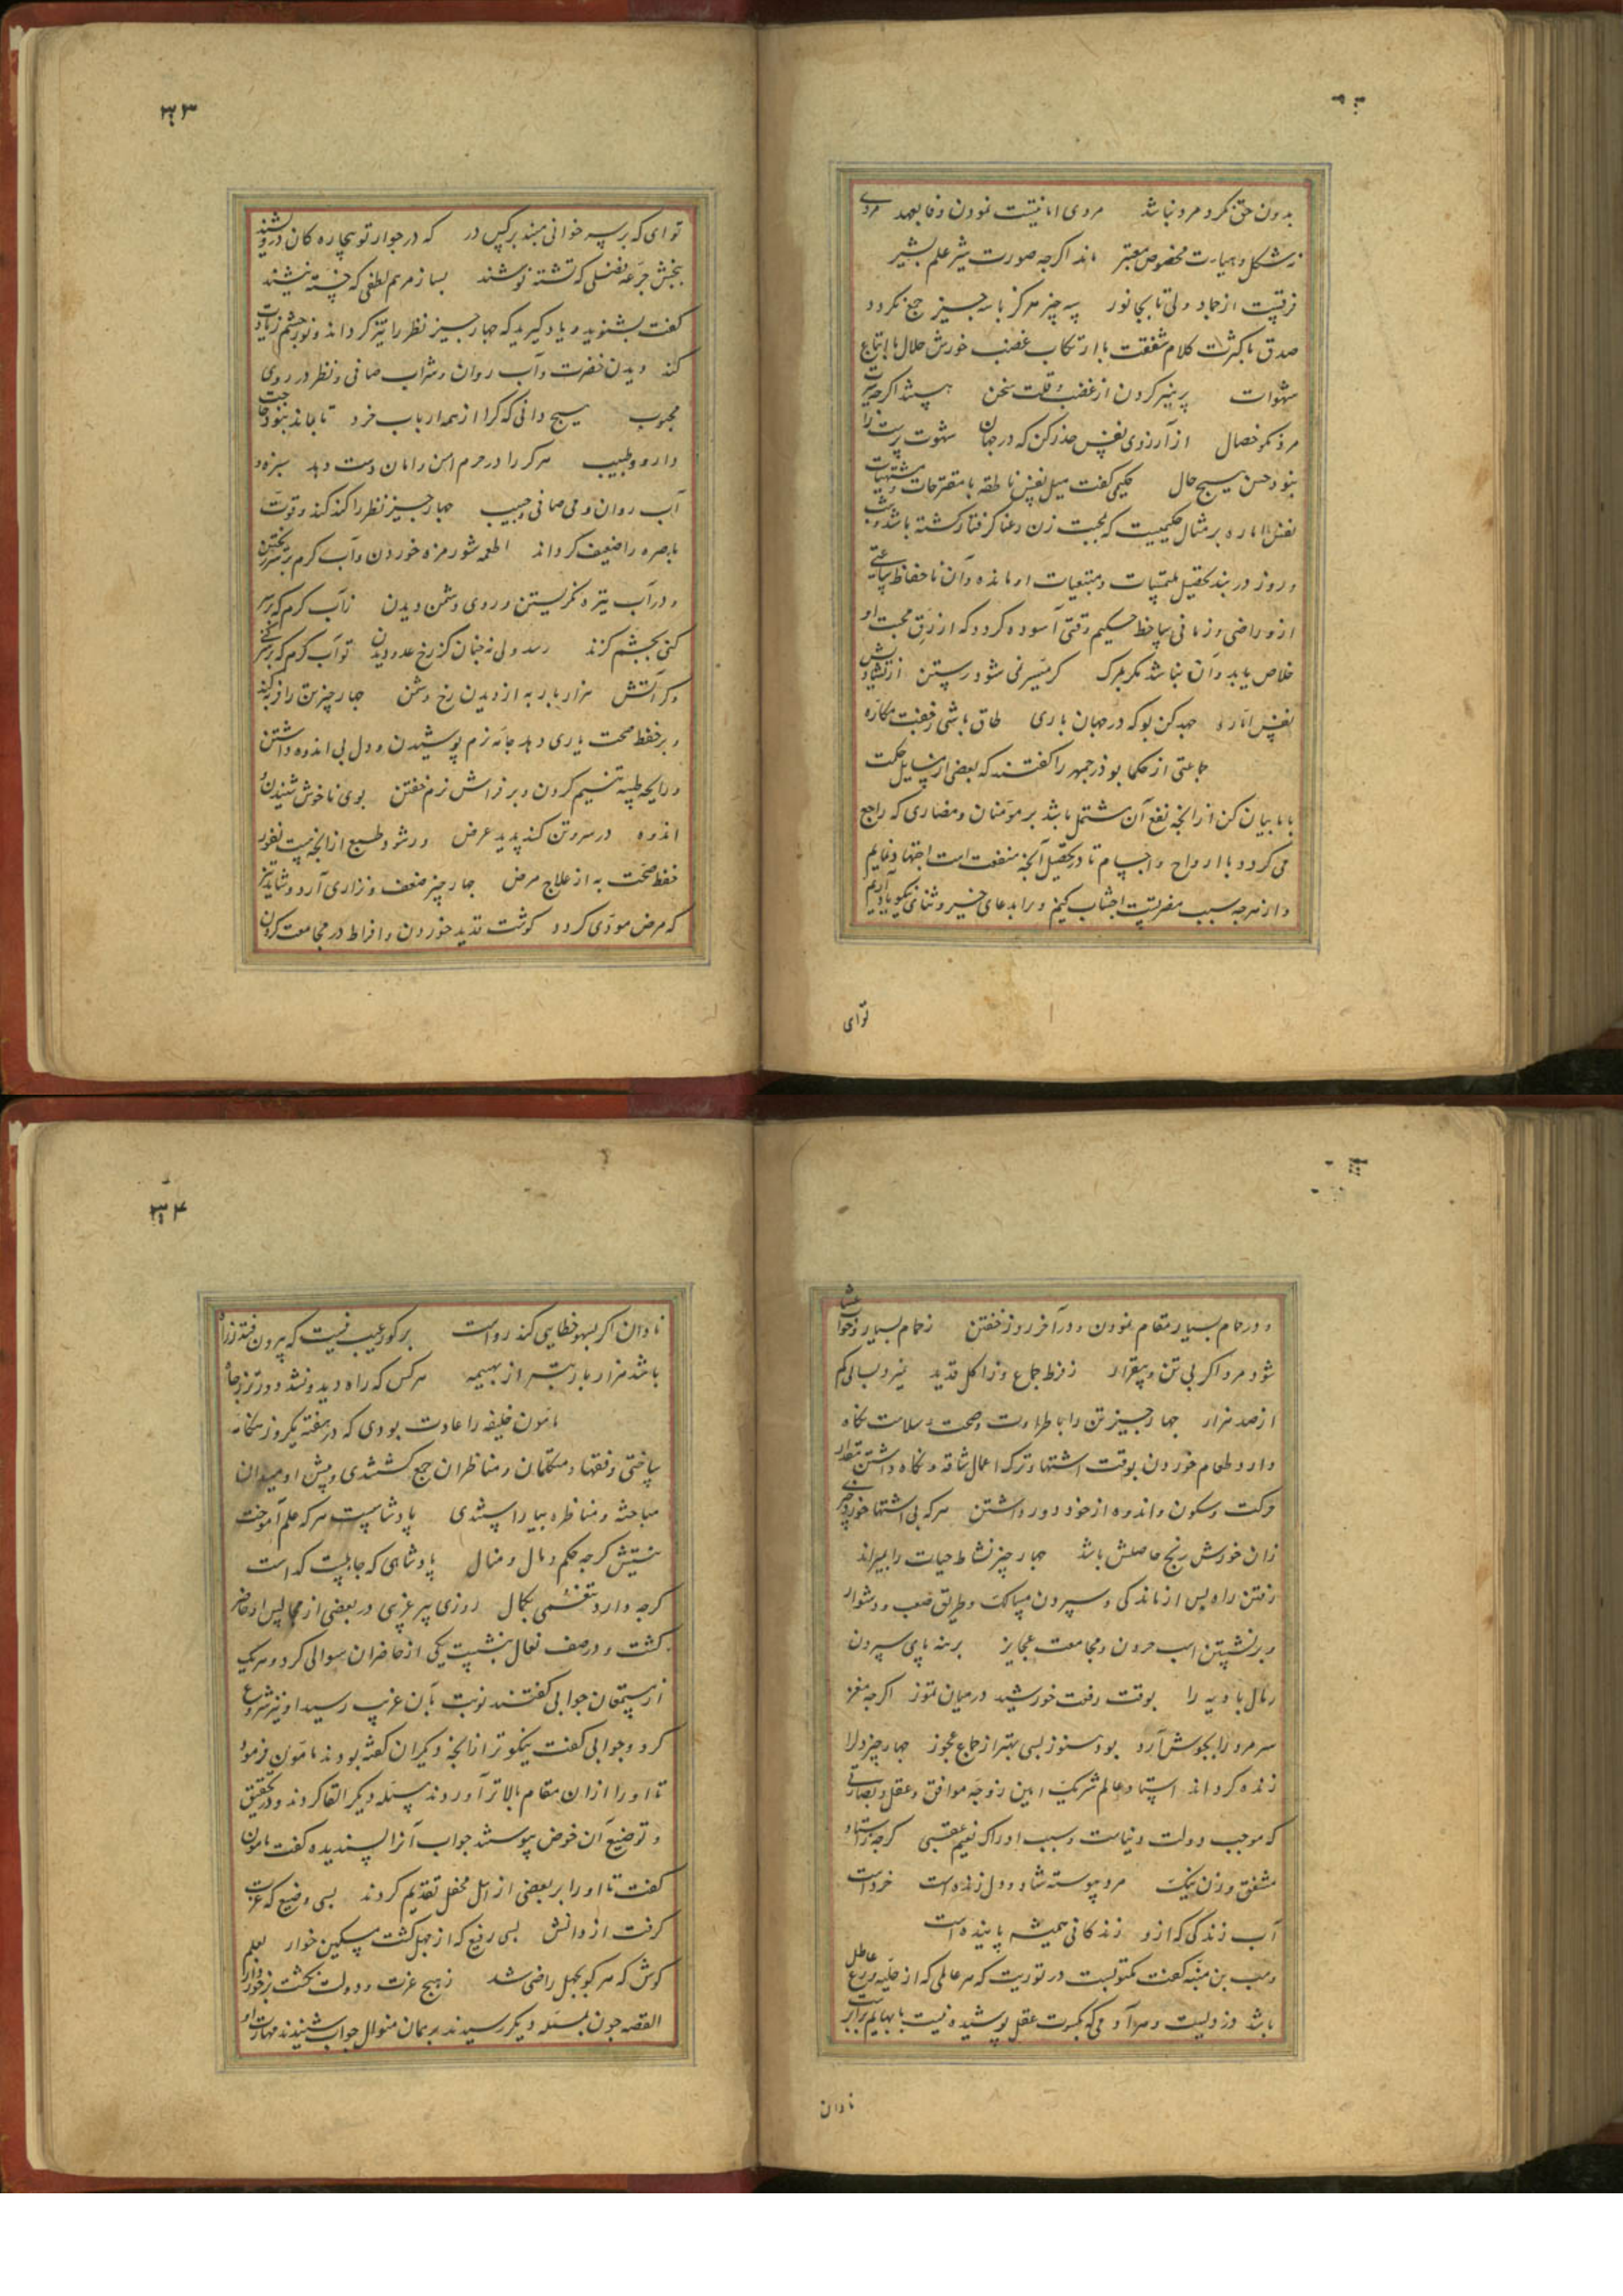 بدون حق نکرد مرد نباشد مردی امانتیست نمودن وفا بعهد مردی
ز شکل و هیات مخصوص معتبر ماند اگرچه صورت شیر علم بشیر
فرقیست از جماد ولی تا بجانور سه چیز هرگز با سه چیز جمع نکردد
صدق با کثرت کلام شفقت با ارتکاب غضب خورش حلال با اتباع
شهوات پرهیز کردن از غضب و قلت سخن
مرد نکو خصال از آرزوی نفس حذر کن که در جهان شهوت پرست را
نبود حسن هیچ حال حکیمی گفت میل نفس ناطقه با مقترحات و مشتهیات
نفس اماره بر مثال حکیمیست که بمحبت زن رعنا گرفتار گشته باشد و شب
و روز در بند تحصیل ملتمسات و متبعیات او مانده و آن ناحفاظ ساعتی
ازو راضی و زمانی ساخط حکیم وقتی آسوده کردد که از رق محبت او
خلاص یابد و آن نباشد مگر بمرگ گر میسر نمی شود رستن از تشاویش
نفس اماره جهد کن بو که در جهان باری طاق باشی ز جفت مکاره
جماعتی از حکما بوذرجمهر را گفتند که بعضی از مسایل حکمت
با ما بیان کن از آنچه نفع آن مشتمل باشد بر مؤمنان و مضاری که راجع
می کردد با ارواح و اجسام تا در تحصیل آنچه منفعت است اجتهاد نمایم
و از هرچه سبب مضرتست اجتناب کنیم و ترا بدعای خیر و ثنای نیکو یاد آریم
توای
۳۳
توای که بر سر خوانی مبند بر کس در که در جوار تو بیچاره کان درویشند
ببخش جرعه فضلی که تشنه نوشند بساز مرهم لطفی که خسته نیشند
گفت بشنوید و یاد کیرید که چهار چیز نظر را تیز کرداند و نور چشم زیادت
کند دیدن خضرت و آب روان و شراب صافی و نظر در روی
محبوب هیچ دانی که کرا از همه ارباب خرد تا بماند نبود حاجت
دارو و طبیب هر که را در حرم امن و امان دست دهد سبزه و
آب روان و می صافی و حبیب چهار چیز نظر را کند کند و قوت
باصره را ضعیف کرداند اطعمه شور مزه خوردن و آب کرم بر سر ریختن
و در آب تیره نکریستن و روی دشمن دیدن ز آب کرم که بر سر
کنی بچشم کزند رسد ولی نه چنان کز رخ عدو دیدن تو آب کرم که بر سر کنی
و کر آتش هزار بار به از دیدن رخ دشمن چهار چیز تن را فربه کند
و بر حفظ صحت یاری دهد جامه نرم پوشیدن و دل بی اندوه داشتن
و رایحه طیبه تنسیم کردن و بر فراش نرم خفتن بوی ناخوش شنیدن و
اندوه در سر و تن کند پدید عرض ورشو و طبع از آنچه نیست نفور
حفظ صحت به از علاج مرض چهار چیز ضعف و زاری آرد و شاید نیز
که مرض مودی کردد گوشت قدید خوردن و افراط در مجامعت کردن
و در حمام بسیار مقام نمودن و در آخر روز خفتن ز حمام بسیار و خواب عشا
شود مرد اگر بی تن و بیقرار ز فرط جماع و ز اکل قدید نمیرد بسالی کم
از صد هزار چهار چیز تن را با طراوت و صحت و سلامت نگاه
دارد طعام خوردن بوقت اشتها و ترک اعمال شاقه و نگاه داشتن مقدار
حرکت و سکون و اندوه از خود دور داشتن هر که بی اشتها خورد چیزی
زان خورش رنج حاصلش باشد چهار چیز نشاط حیات را بمیراند
رفتن راه پس از ماندگی و سپردن مسالک و طریق صعب و دشوار
و بر نشستن اسب حرون و مجامعت عجایز برهنه پای سپردن
رمال بادیه را بوقت رفعت خورشید در میان تموز اگرچه مغز
سر مرد را بجوش آرد بود هنوز بسی بهتر از جماع عجوز چهار چیز دل را
زنده کرداند استاد عالم شریک امین زوجه موافق و عقل و بصارتی
که موجب دولت دنیاست و سبب ادراک نعیم عقبی گرچه ز استاد
مشفق و زن نیک مرد پیوسته شاد و دل زنده است خرد است
آب زندگی که ازو زندگانی همیشه پاینده است
وهب بن منبه گفت مکتوبست در توریت که هر عالمی که از حلیه ورع عاطل
باشد دزدیست و هر آدمی که بکسوت عقل پوشیده نیست با بهایم برابر
نادان
۳۴
نادان اگر بسهو خطایی کند رواست بر کور عیب نیست که بیرون فتد ز راه
باشد هزار بار بتر از بهیمه هر کس که راه دید و نشد دورتر ز چاه
مامون خلیفه را عادت بودی که در هفته یکروز هنگامه
ساختی و فقها و متکلمان و مناظران جمع گشتندی و پیش او میدان
مباحثه و مناظره بیاراستندی پادشاهیست هر که علم آموخت
نیستش گرچه حکم و مال و منال پادشاهی که جاهلست گداست
گرچه دارد تنعمی بکمال روزی پیر غریبی در بعضی از مجالس او حاضر
گشت و در صف نعال بنشست یکی از حاضران سوالی کرد و هر یک
از مستمعان جوابی گفتند نوبت بآن غریب رسید او نیز شروع
کرد و جوابی گفت نیکوتر از آنچه دیگران گفته بودند مامون فرمود
تا او را از ان مقام بالاتر آوردند مسئله دیگر القا کردند و در تحقیق
و توضیح آن خوض پیوستند جواب آنرا پسندیده گفت مامون
گفت تا او را بر بعضی از اهل محفل تقدیم کردند بسی وضیع که عزت
گرفت از دانش بسی رفیع که از جهل گشت مسکین خوار بعلم
کوش که هر کو بجهل راضی شد ز هیچ عزت و دولت نگشت برخوردار
القصه چون بمسئله دیگر رسیدند بر همان منوال جواب شنیدند مهارت او